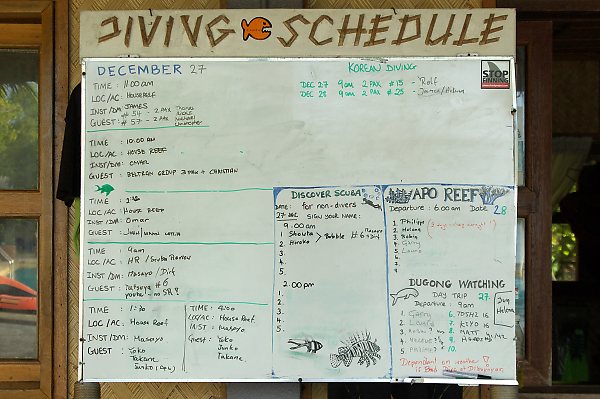 DIVING SCHEDULE
DECEMBER 27
TIME : 11:00am
LOC/AC: HOUSEREEF
INST/DM: JAMES
GUEST: #57 - 2 PAX
TIME : 10:00am
LOC/AC: HOUSE REEF
INST/DM: OMAR
GUEST : BELTRAN GROUP 3 PAX + CHRISTIAN
TIME :
LOC/AC: HOUSE REEF
INST/DM: Omar
GUEST :
TIME : 9am
LOC/AC : HR / Scuba Review
INST/DM: Masayo / Dirk
GUEST : Tatsuya #6
TIME : 1:30
LOC/AC : House Reef
INST/DM: Masayo
GUEST : Yoko
Takane
Junko
TIME : 4:00
LOC/AC : House Reef
INST : Masayo
Guest : Yoko
Junko
Takane
KOREAN DIVING
DEC 27 9am 2 PAX #15 - Rolf
DEC 28 9am 2 PAX #25 - James/Helena
STOP
FINNING
DISCOVER SCUBA
DATE: for non-divers
27 DEC SIGN YOUR NAME:
9:00 am
1 Shouta > Bubble Masayo
2 Hiroko
3.
4.
5.
2:00 pm
1.
2.
3.
4.
5.
APO REEF
Departure : 6:00 am Date 28
1 Philipp
2 Helene
3 Robin
4 Garry
5 Laura
6
7
8
DUGONG WATCHING
DAY TRIP 27
Departure : 9am
1 Garry 6. TOSHI 16
2 Laura 7. KIYO 16
8 MATT
9
10.
Dependant on weather